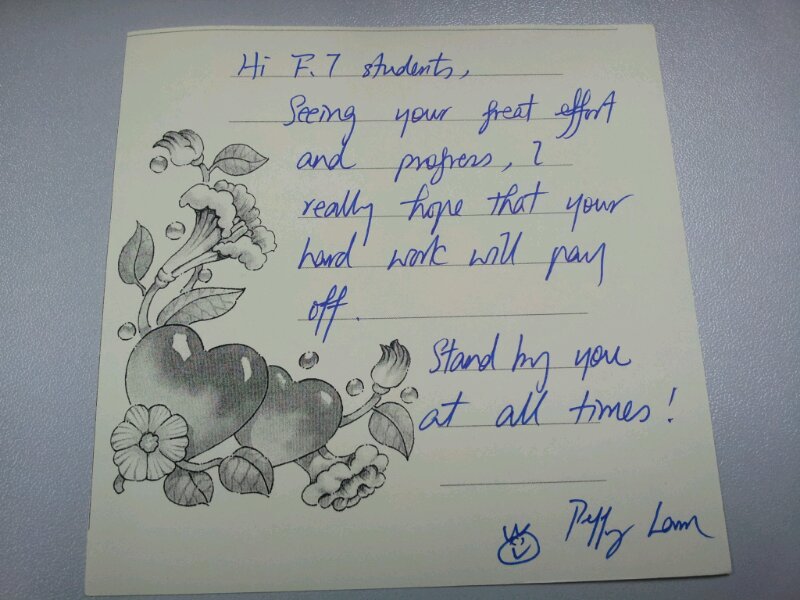 Hi F.7 students,
Seeing your great effort
and progress, I
really hope that your
hard work will pay
off.
Stand by you
at all times!
Peggy Lam